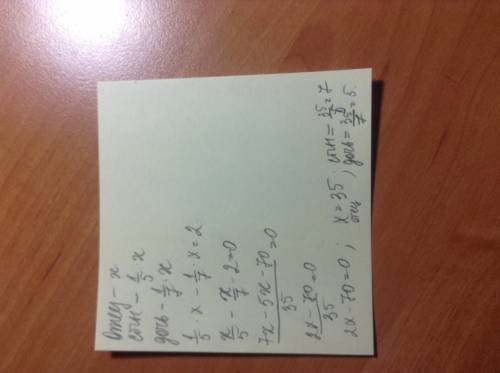 Отец - x
сын - 1/5 x
дочь - 1/7 · x
1/5 · x - 1/7 · x = 2
x/5 - x/7 - 2 = 0
(7x - 5x - 70)/35 = 0
(2x - 70)/35 = 0
2x - 70 = 0 ; x = 35 ; сын = 35/5 = 7
отец ; дочь = 35/7 = 5.